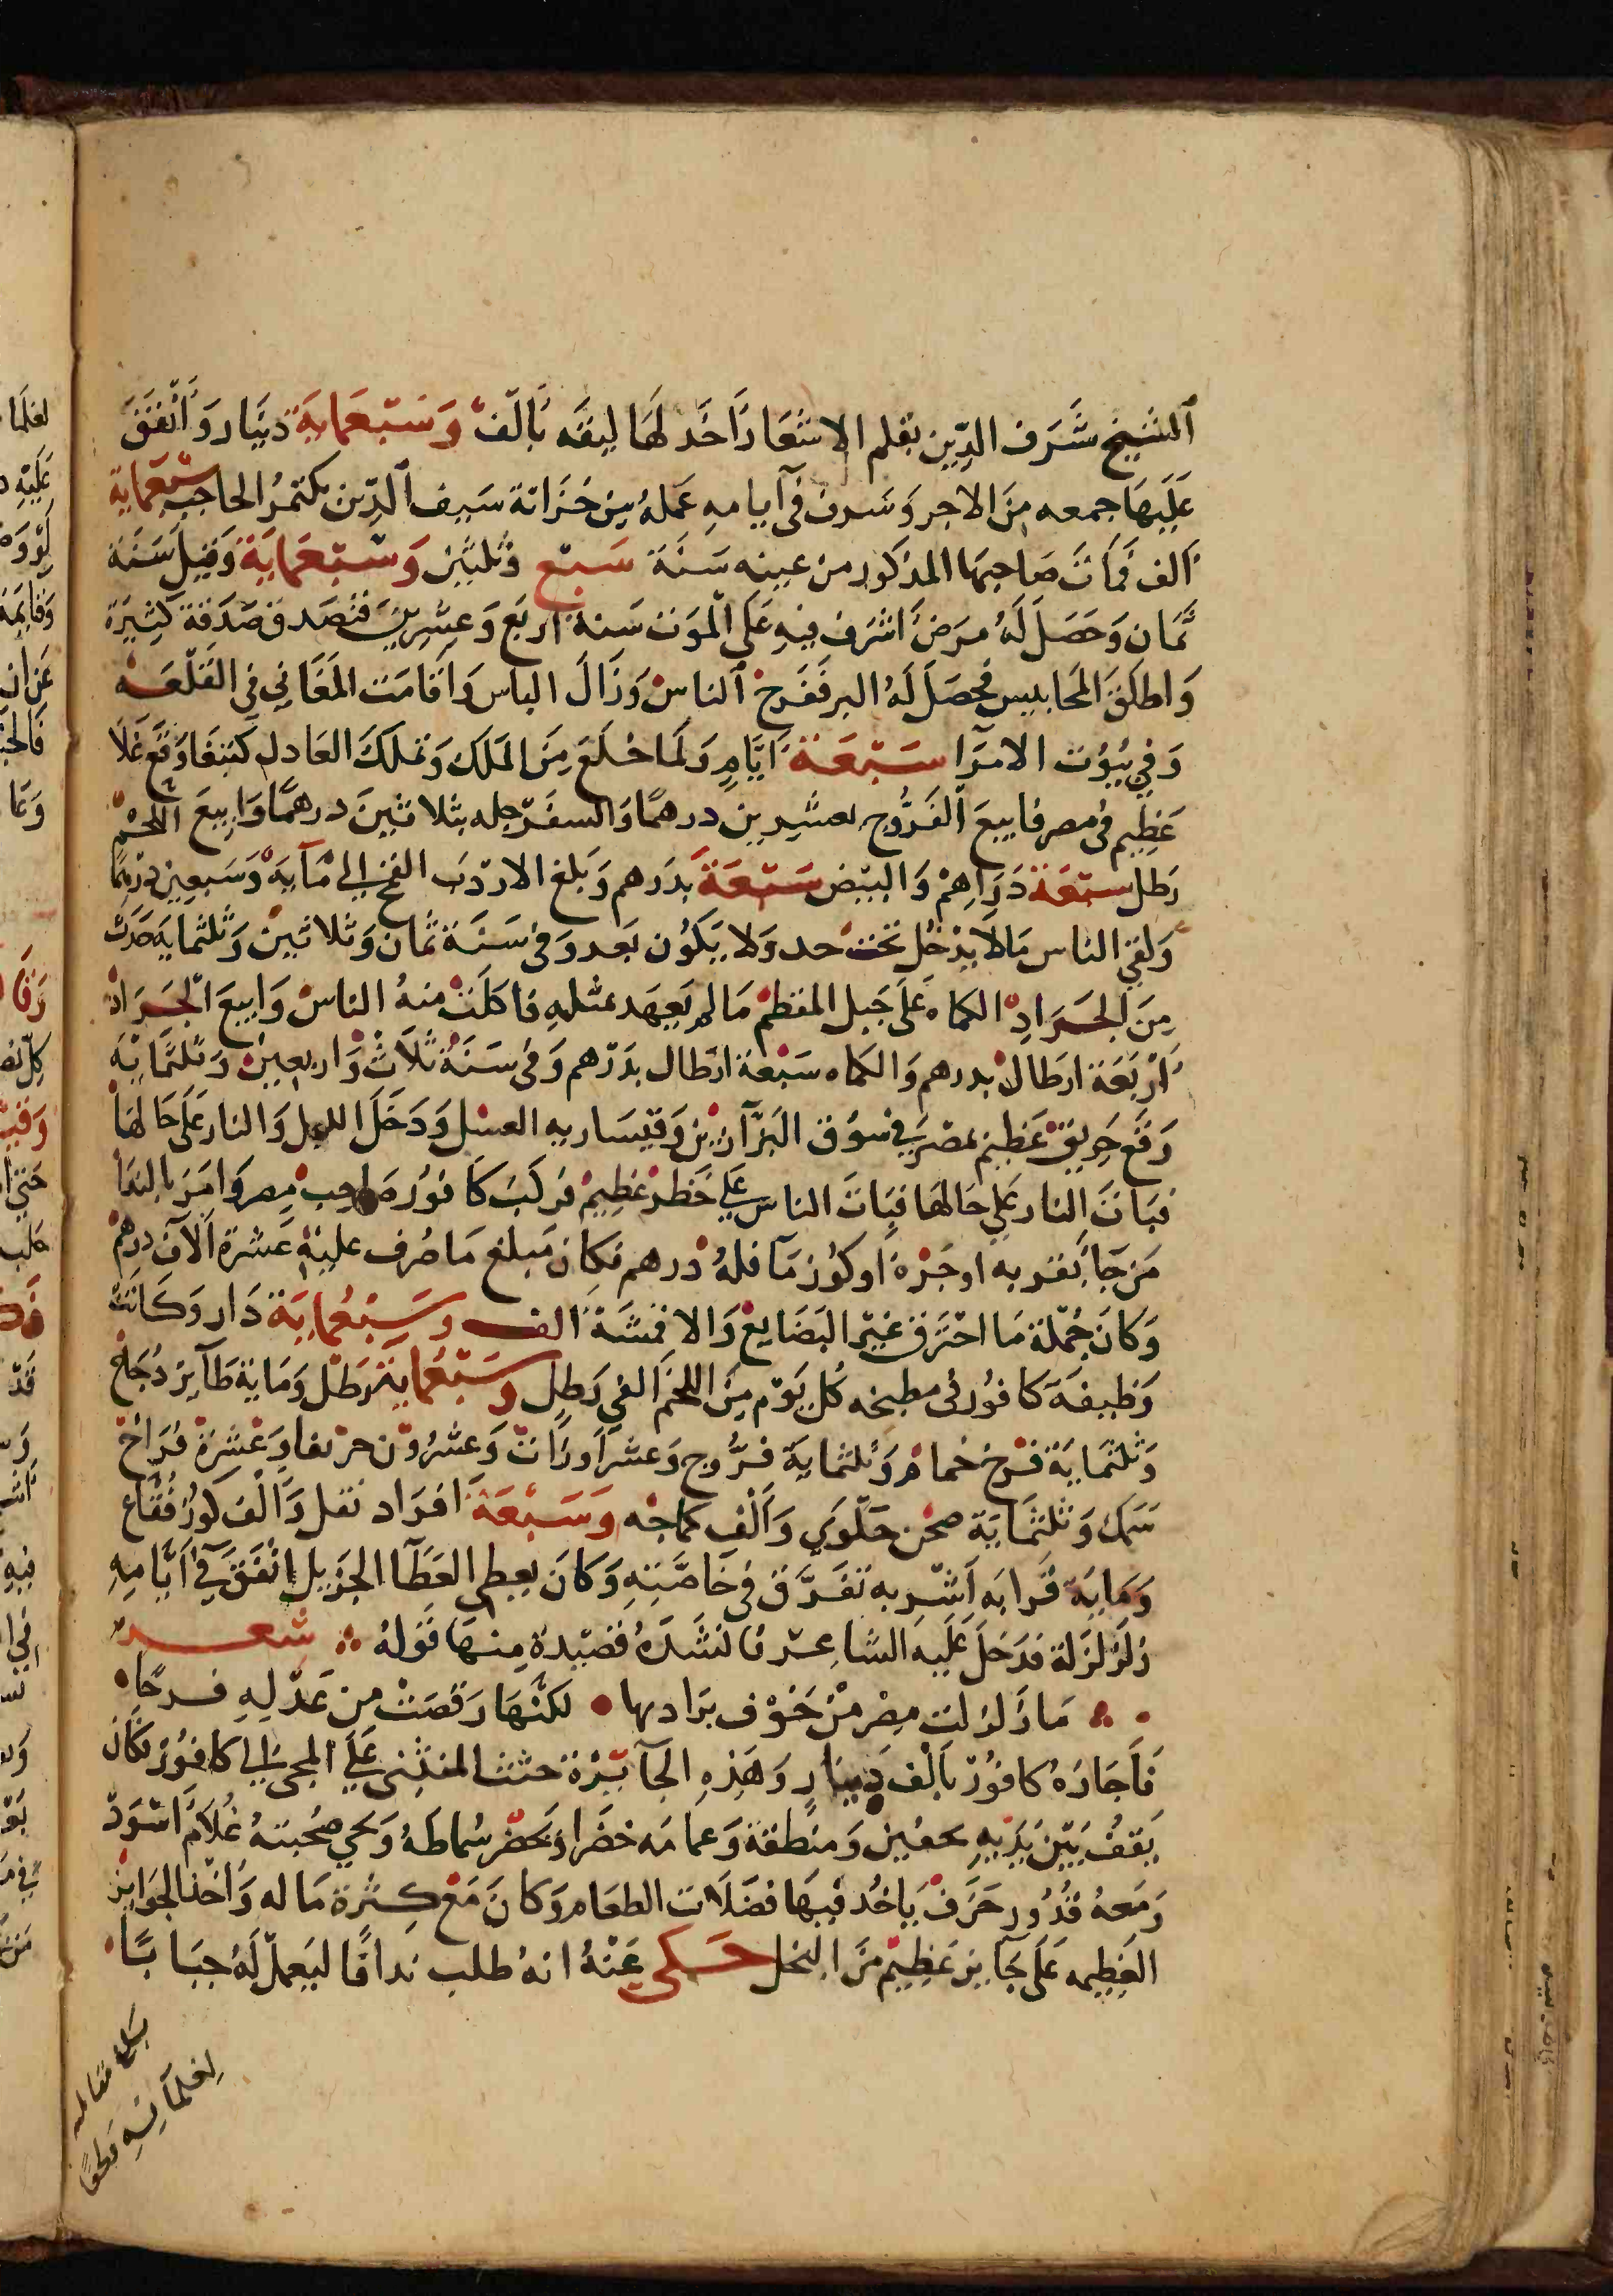 الشيخ شرف الدين بقلم الاشعار اخد لها ليقه بالف وسبعماية دينار وانفق
عليها جمعه من الاجر وسرف في ايامه عمله من خزانة سيف الدين بكتمر الحاجب سبعماية
الف فمات صاحبها المذكور من عينه سنة سبع وثلثين وسبعماية وقيل سنة
ثمان وحصل له مرض اشرف فيه على الموت سنة اربع وعشرين فتصدق صدقة كثيرة
واطلق المحابيس فحصل له البر ففرح الناس وزال الباس واقامت المغاني في القلعه
وفي بيوت الامرا سبعة ايام ولما خلع من الملك وتملك العادل كتبغا وقع غلا
عظيم في مصر فابيع الفروج بعشرين درهما والسفرجله بثلاثين درهما وابيع اللحم
رطل سبعة دراهم والبيض سبعة بدرهم وبلغ الاردب القمح الي ماية وسبعين درهما
ولقي الناس مالا يدخل تحت حد ولا يكون بعد وفي سنة ثمان وثلاثين وثلثماية حدث
من الجراد الكماه على جبل المقطم ما لم يعهد بمثله فاكلت منه الناس وابيع الجراد
اربعة ارطال بدرهم والكماه سبعة ارطال بدرهم وفي سنة ثلاث واربعين وثلثماية
وقع حريق عظيم بمصر في سوق البزازين وقيساريه العسل ودخل الليل والنار على حالها
فباتت النار علي حالها فبات الناس علي خطر عظيم فركب كافور صاحب مصر وامر بالندا
من جا بقربه او جره او كوز ما فله درهم فكان مبلغ ما صرف عليه عشرة الاف درهم
وكان جملة ما احترق غير البضايع والاقمشة الف وسبعماية دار وكانت
وظيفة كافور في مطبخه كل يوم من اللحم الفي رطل وسبعماية رطل وماية طاير دجاج
وثلثماية فرخ حمام وثلثماية فروج وعشر اوزات وعشرون خروفا وعشرة فراخ
سمك وثلثماية صحن حلوي والف كماجه وسبعة افراد نقل والف كوز فقاع
وماية قرابه اشربه تفرق في خاصته وكان يعطي العطا الجزيل اتفق في ايامه
زلزلزلة فدخل عليه الشاعر فانشده قصيدة منها قوله شعر
ما زلزلت مصر من خوف يرادبها لكنها رقصت من عدله فرحا
فاجازه كافور بالف دينار وهذه الجايزة حثت المتنبي علي المجي الي كافور فكان
يقف بين يديه بخفين ومنطقة وعمامه خضرا ويحضر سماطه وبجي صحبته غلام اسود
ومعه قدور خزف ياخد فيها فضلات الطعام وكان مع كثرة ماله واخد الجوايز
العظيمه على جانب عظيم من البخل حكي عنه انه طلب ندافا ليعمل له جبابا
بلغ مقابله
لغلمانه قطنا